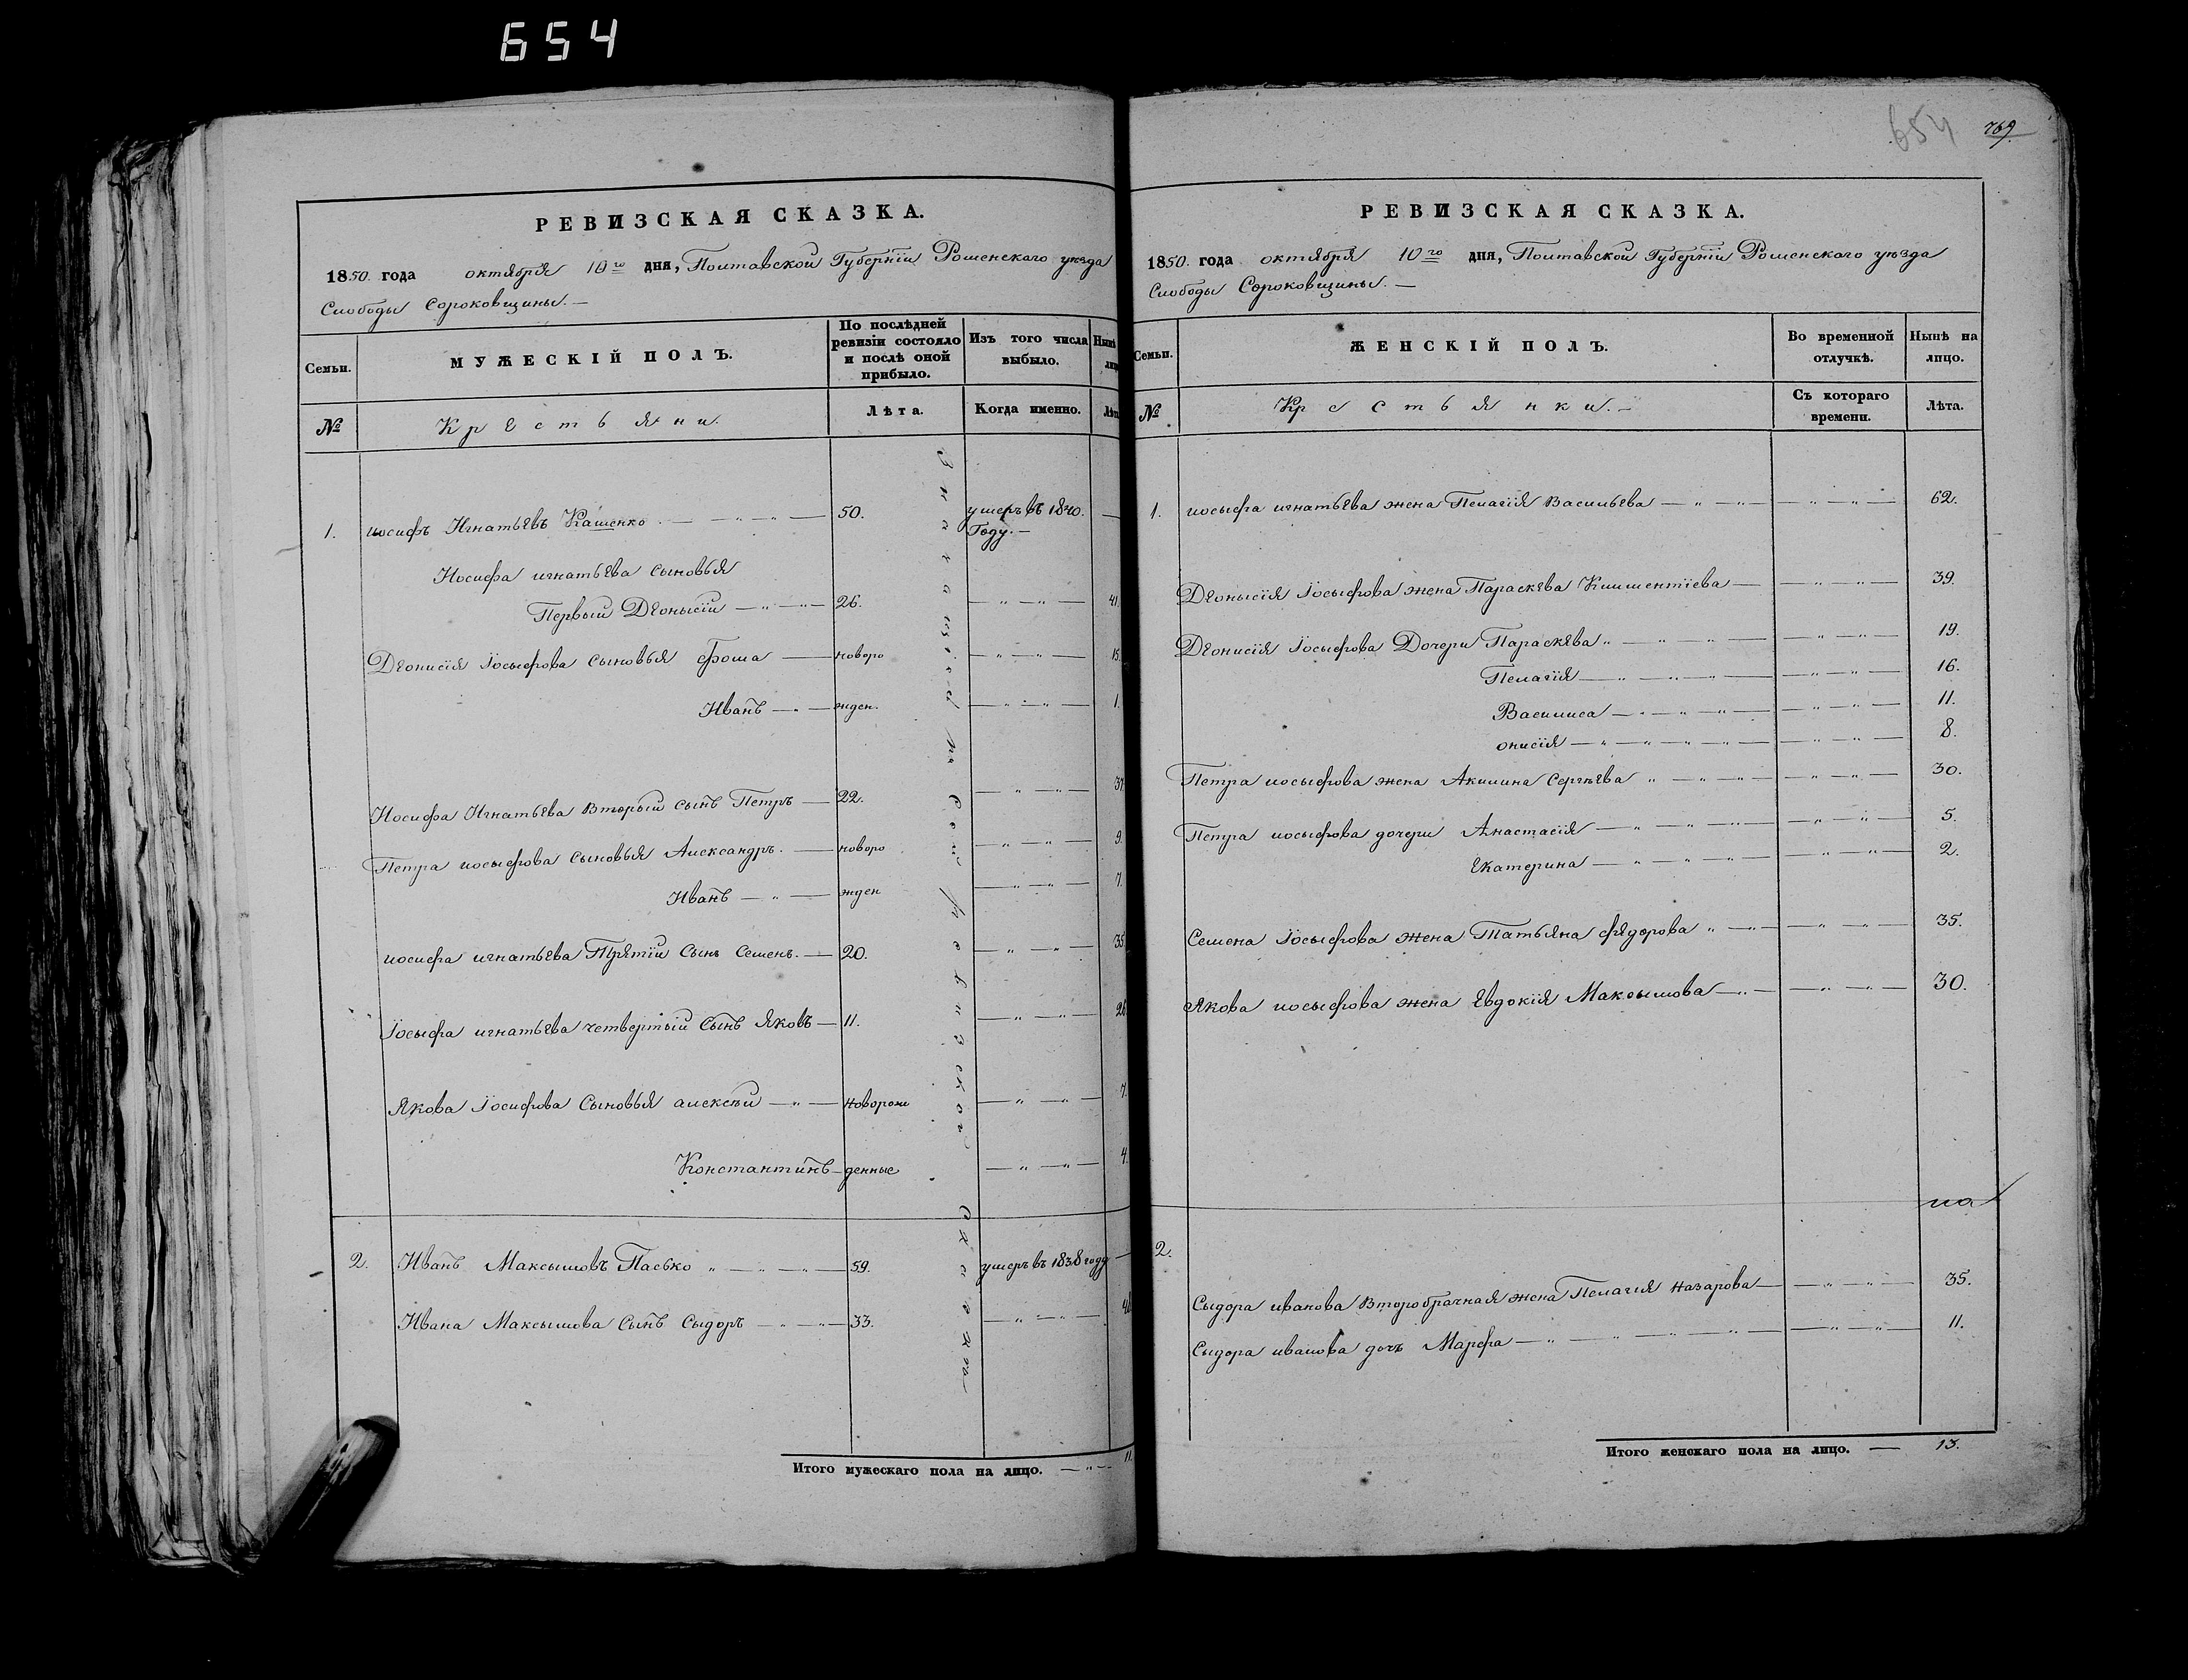 654
РЕВИЗСКАЯ СКАЗКА.
1850. года октября 10го дня, Полтавской Губерніи Роменского уезда
Слободы Сороковщины. —
Семьи.
МУЖЕСКІЙ ПОЛЪ.
По послѣдней ревизіи состояло и послѣ оной прибыло.
Изъ того числа выбыло.
Нынѣ
№
Крестьяни.
Лѣта.
Когда именно.
Лѣта
1. иосифъ Игнатьевъ Кашенко — 50. умеръ въ 1840. Году. —
Иосифа игнатьева сыновья
Первый Деонысій — 26. — 41.
Деонисія Іосыфова сыновья фома — новоро — 15.
Иванъ — жден. — 1.
Иосифа Игнатьева Вторый сынъ Петръ — 22. — 37
Петра иосыфова сыновья Александръ. — новоро — 9.
Иванъ — жден — 7.
иосифа игнатьева Третій Сынъ Семенъ. — 20. — 35
Іосыфа игнатьева четвертый Сынъ Яковъ — 11. — 26.
Якова Іосифова Сыновья алексѣй — Новорож — 7.
Константинъ — денные — 4.
2. Иванъ Максымовъ Пасько — 59. умеръ въ 1838 году —
Ивана Максымова Сынъ Сыдоръ — 33.
Итого мужескаго пола на лицо. — 11.
654
769.
РЕВИЗСКАЯ СКАЗКА.
1850. года октября 10го дня, Полтавской Губерніи Роменского уезда
Слободы Сороковщины. —
Семьи.
ЖЕНСКІЙ ПОЛЪ.
Во временной отлучкѣ.
Нынѣ на лицо.
№
Крестьянки. —
Съ котораго времени.
Лѣта.
1. иосыфа игнатьева жена Пелагія Васильева — 62.
Деонысія Іосыфова жена Параскева Климентіева — 39.
Деонисія Іосыфова Дочери Параскева — 19.
Пелагія — 16.
Василиса — 11.
онисія — 8.
Петра иосыфова жена Акилина Сергѣева — 30.
Петра иосыфова дочери Анастасія — 5.
Екатерина — 2.
Семена Іосыфова жена Татьяна федорова — 35.
Якова иосыфова жена Евдокія Максымова — 30.
2.
Сыдора иванова Второбрачная жена Пелагія Назарова — 35.
Сыдора иванова дочь Марфа — 11.
Итого женскаго пола на лицо. — 13.